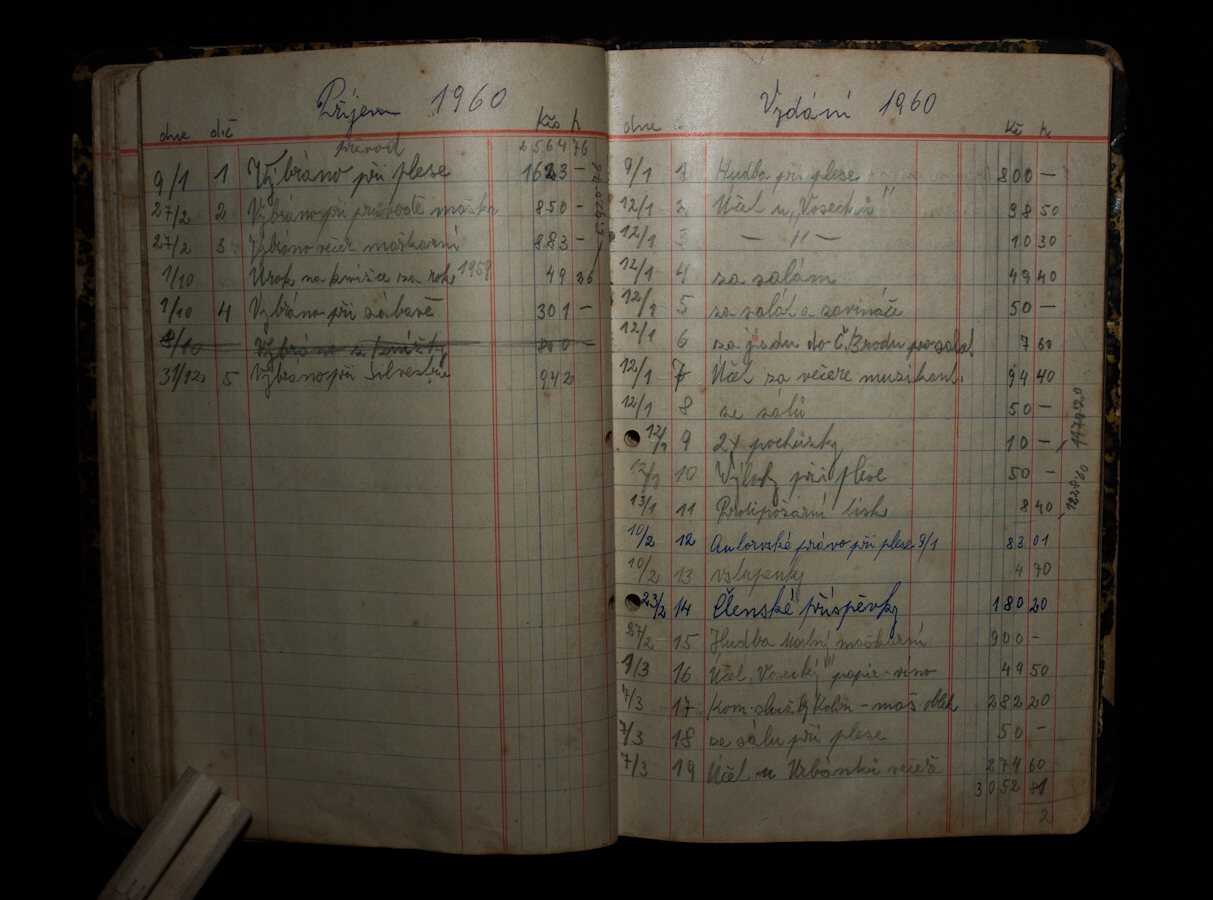 Příjem 1960
dne dič Kčs h
převod 2564 76
9/1 1 Vybráno při plese 1623 -
27/2 2 Vybráno při průvodě mašk. 850 -
27/2 3 Vybráno večer maškarní 883 -
1/10 Úrok na knížce za rok 1959 49 36
1/10 4 Vybráno při zábavě 301 -
8/10 Vybráno z knížky 800 -
31/12 5 Vybráno při Silvestru 942
Vydání 1960
dne Kčs h
9/1 1 Hudba při plese 800 -
12/1 2 Účel u "Vosecků" 98 50
12/1 3 - " - 10 30
12/1 4 za salám 49 40
12/1 5 za salát a zavináče 50 -
12/1 6 za jízdu do Č. Brodu pro salát 7 60
12/1 7 Účel za večeře muzikant. 94 40
12/1 8 ze sálu 50 -
12/1 9 2x pochůzky 10 -
12/1 10 Výlohy při plese 50 -
13/1 11 Protipožární hlídk. 8 40
10/2 12 Autorské právo při plese 9/1 83 01
10/2 13 vstupenky 4 70
23/2 14 Členské příspěvky 180 20
27/2 15 Hudba maškarní 900 -
1/3 16 Účel "Vosecký" papír - víno 49 50
7/3 17 Kom. služby Kolín - maš. oblek 282 20
7/3 18 ze sálu při plese 50 -
7/3 19 Účel u Urbánků večeře 274 60
3052 81
2
1179 20
1228 60